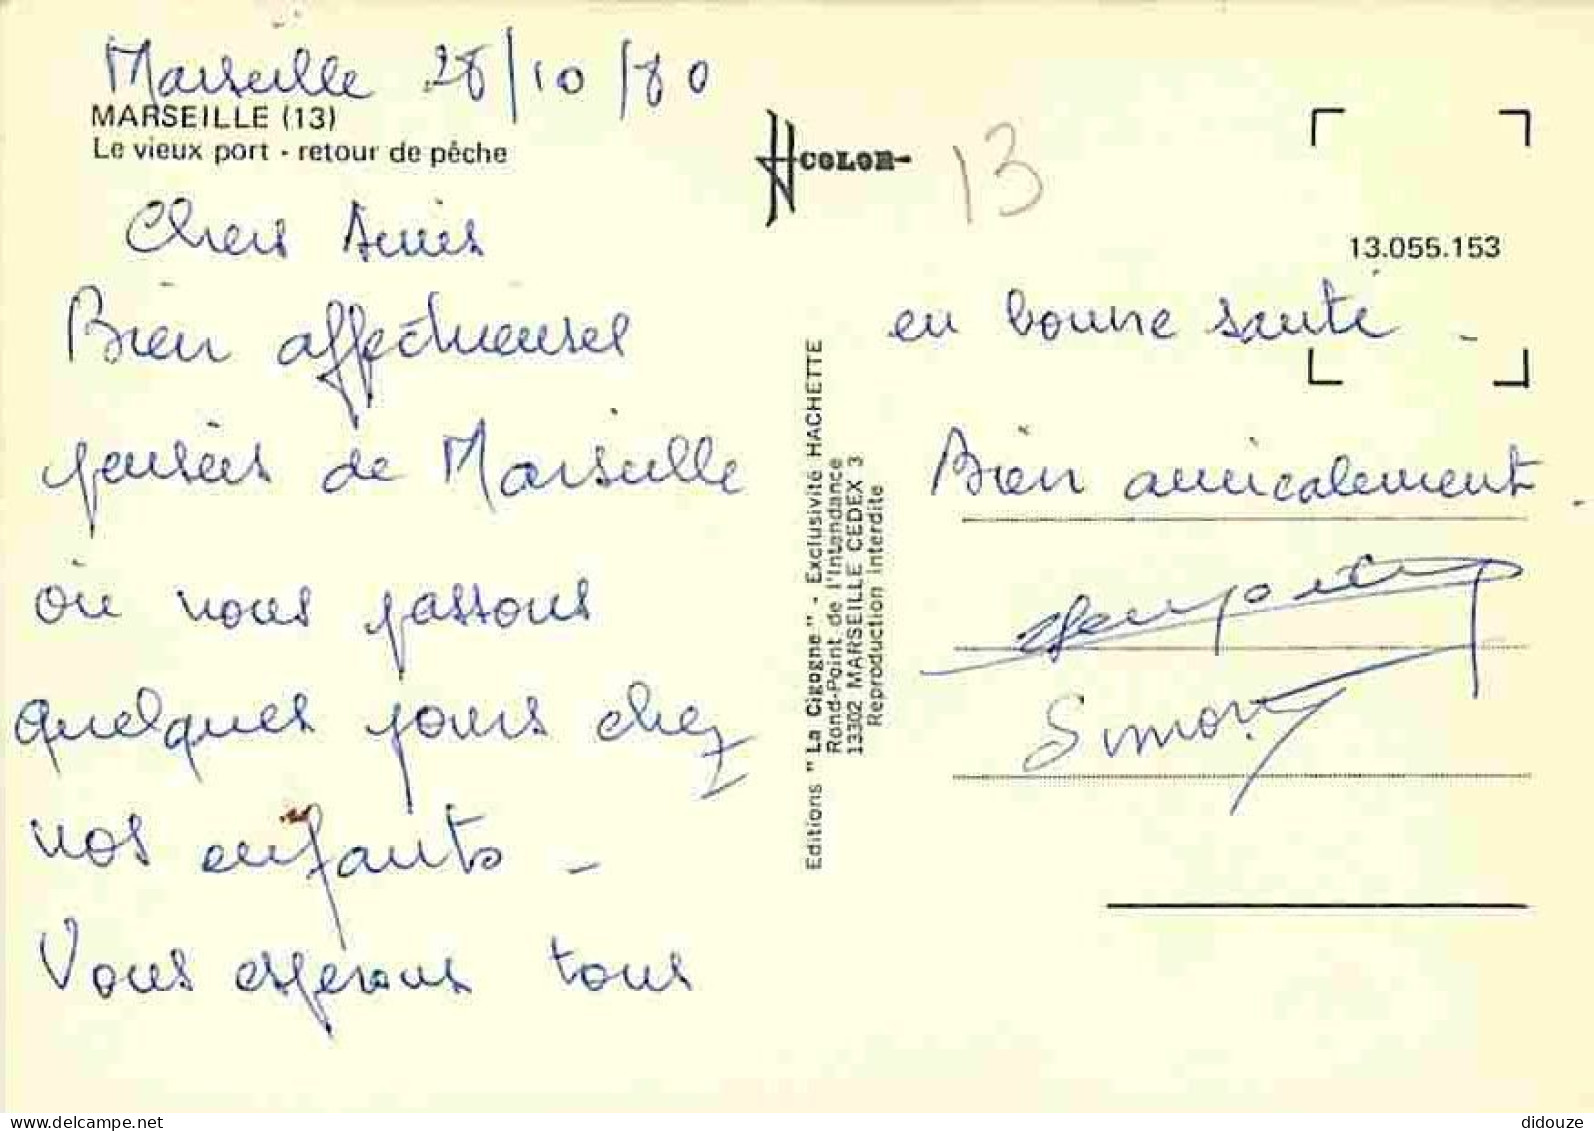 Marseille 28/10/80
MARSEILLE (13)
Le vieux port - retour de pêche
Chers Amis
Bien affectueuses
pensées de Marseille
où nous passons
quelques jours chez
nos enfants -
Vous esperons tous
HCOLOR
13
13.055.153
en bonne santé -
Bien amicalement.
Simon
Editions "La Cigogne" - Exclusivité HACHETTE
Rond-Point de l'Intendance
13302 MARSEILLE CEDEX 3
Reproduction interdite
delcampe.net
didouze